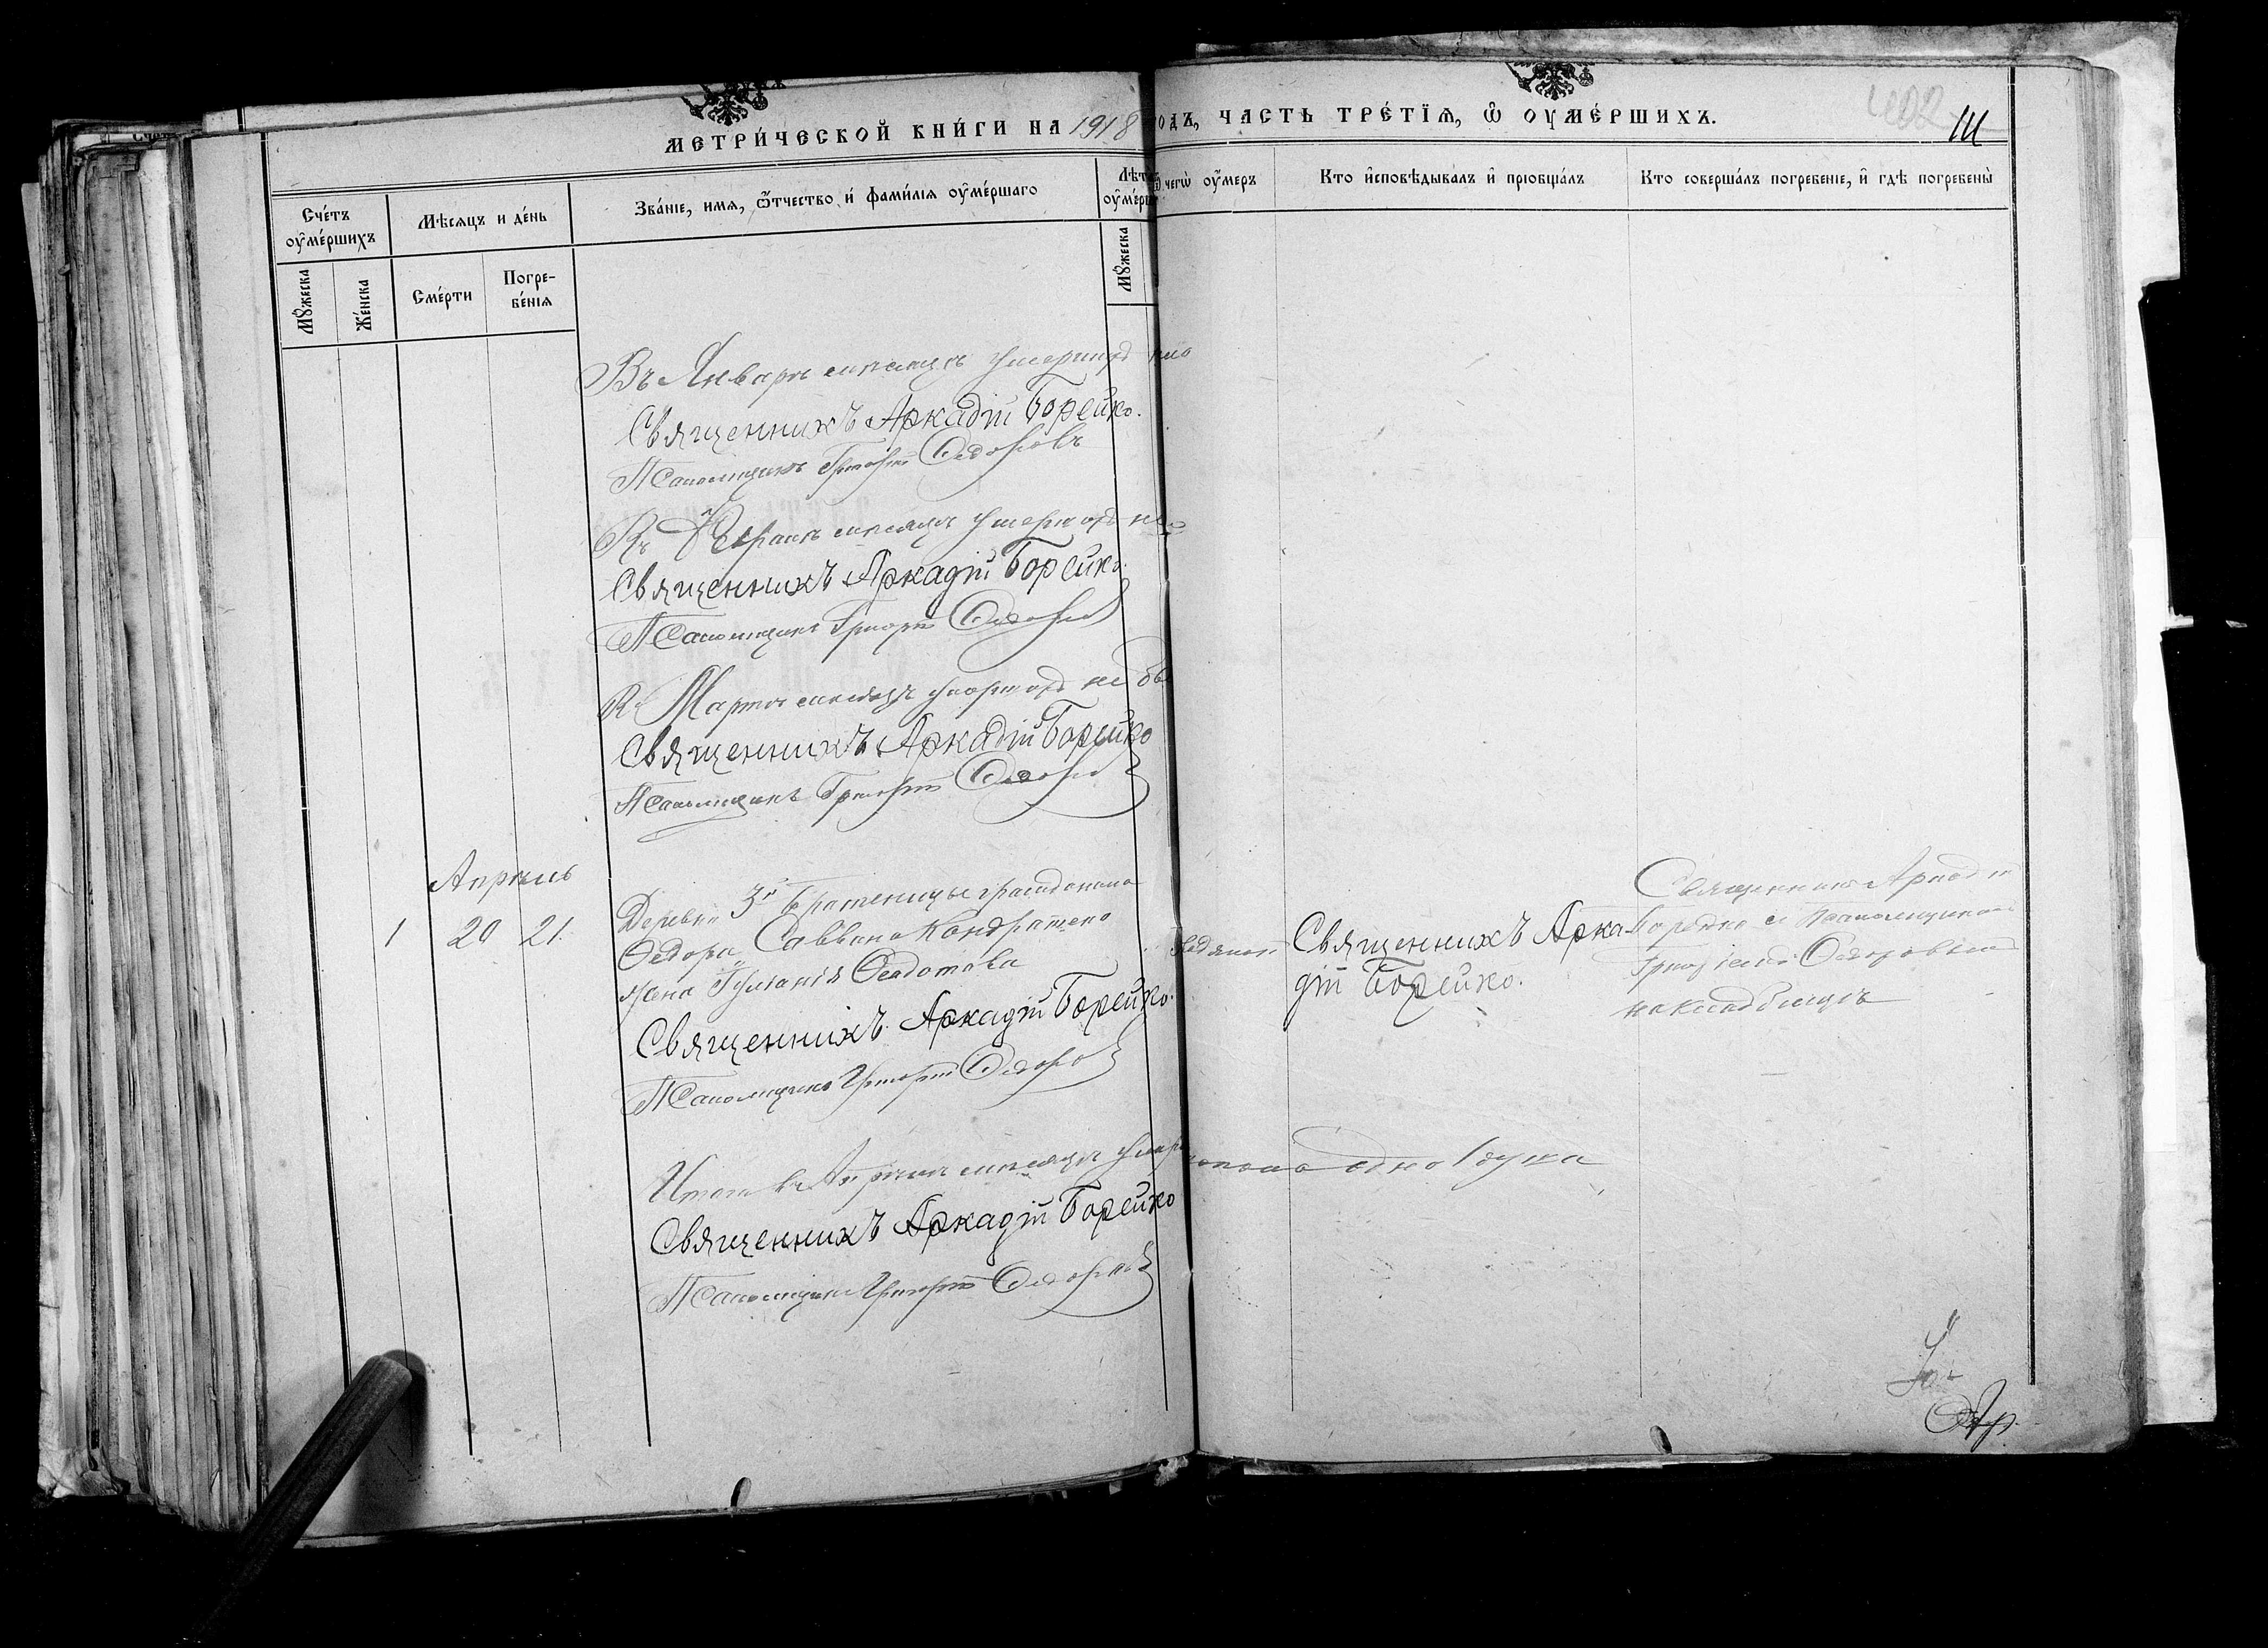 МЕТРИ́ЧЕСКОЙ КНИ́ГИ НА 1918
ГОДЪ, ЧАСТЬ ТРЕ́ТЇѦ, Ѡ҆ ОУ҆МЕ́РШИХЪ.
402
111
Сче́тъ оу҆ме́ршихъ
Мѣ́сяцъ и де́нь
Зва́нїе, имѧ, ѻ҆́тчество и҆ фами́лїѧ оу҆ме́ршаго
Лѣт
оу҆мерш
чегѡ̀ оу҆́меръ
Кто и҆сповѣ́дывалъ и҆ прїобща́лъ
Кто соверша́лъ погребе́нїе, и҆ гдѣ̀ погребены̀
Мꙋ́жеска
Же́нска
Сме́рти
Погре-
бе́нїѧ
Мꙋ́жеска
Въ Январѣ мѣсяцѣ умершихъ не
Священникъ Аркадій Борейко.
Псаломщикъ Григорій Ѳедоровъ
Въ Февралѣ мѣсяцѣ умершихъ не
Священникъ Аркадій Борейко.
Псаломщикъ Григорій Ѳедоровъ
Въ Мартѣ мѣсяцѣ умершихъ не бы
Священникъ Аркадій Борейко
Псаломщикъ Григорій Ѳедоровъ
Апрѣль
1 20 21.
Деревни 3й Братеницы гражданина
Ѳедора Саввина Кондратенко
жена Ѳедотова
Священникъ Аркадій Борейко.
Псаломщикъ Григорій Ѳедоровъ
Священникъ Арка-
дій Борейко.
Священникъ Аркадій
Борейко съ Псаломщикомъ
Григоріемъ Ѳедоровымъ
на кладбищѣ
Итого въ Апрѣлѣ мѣсяцѣ одна 1 душа
Священникъ Аркадій Борейко
Псаломщикъ Григорій Ѳедоровъ